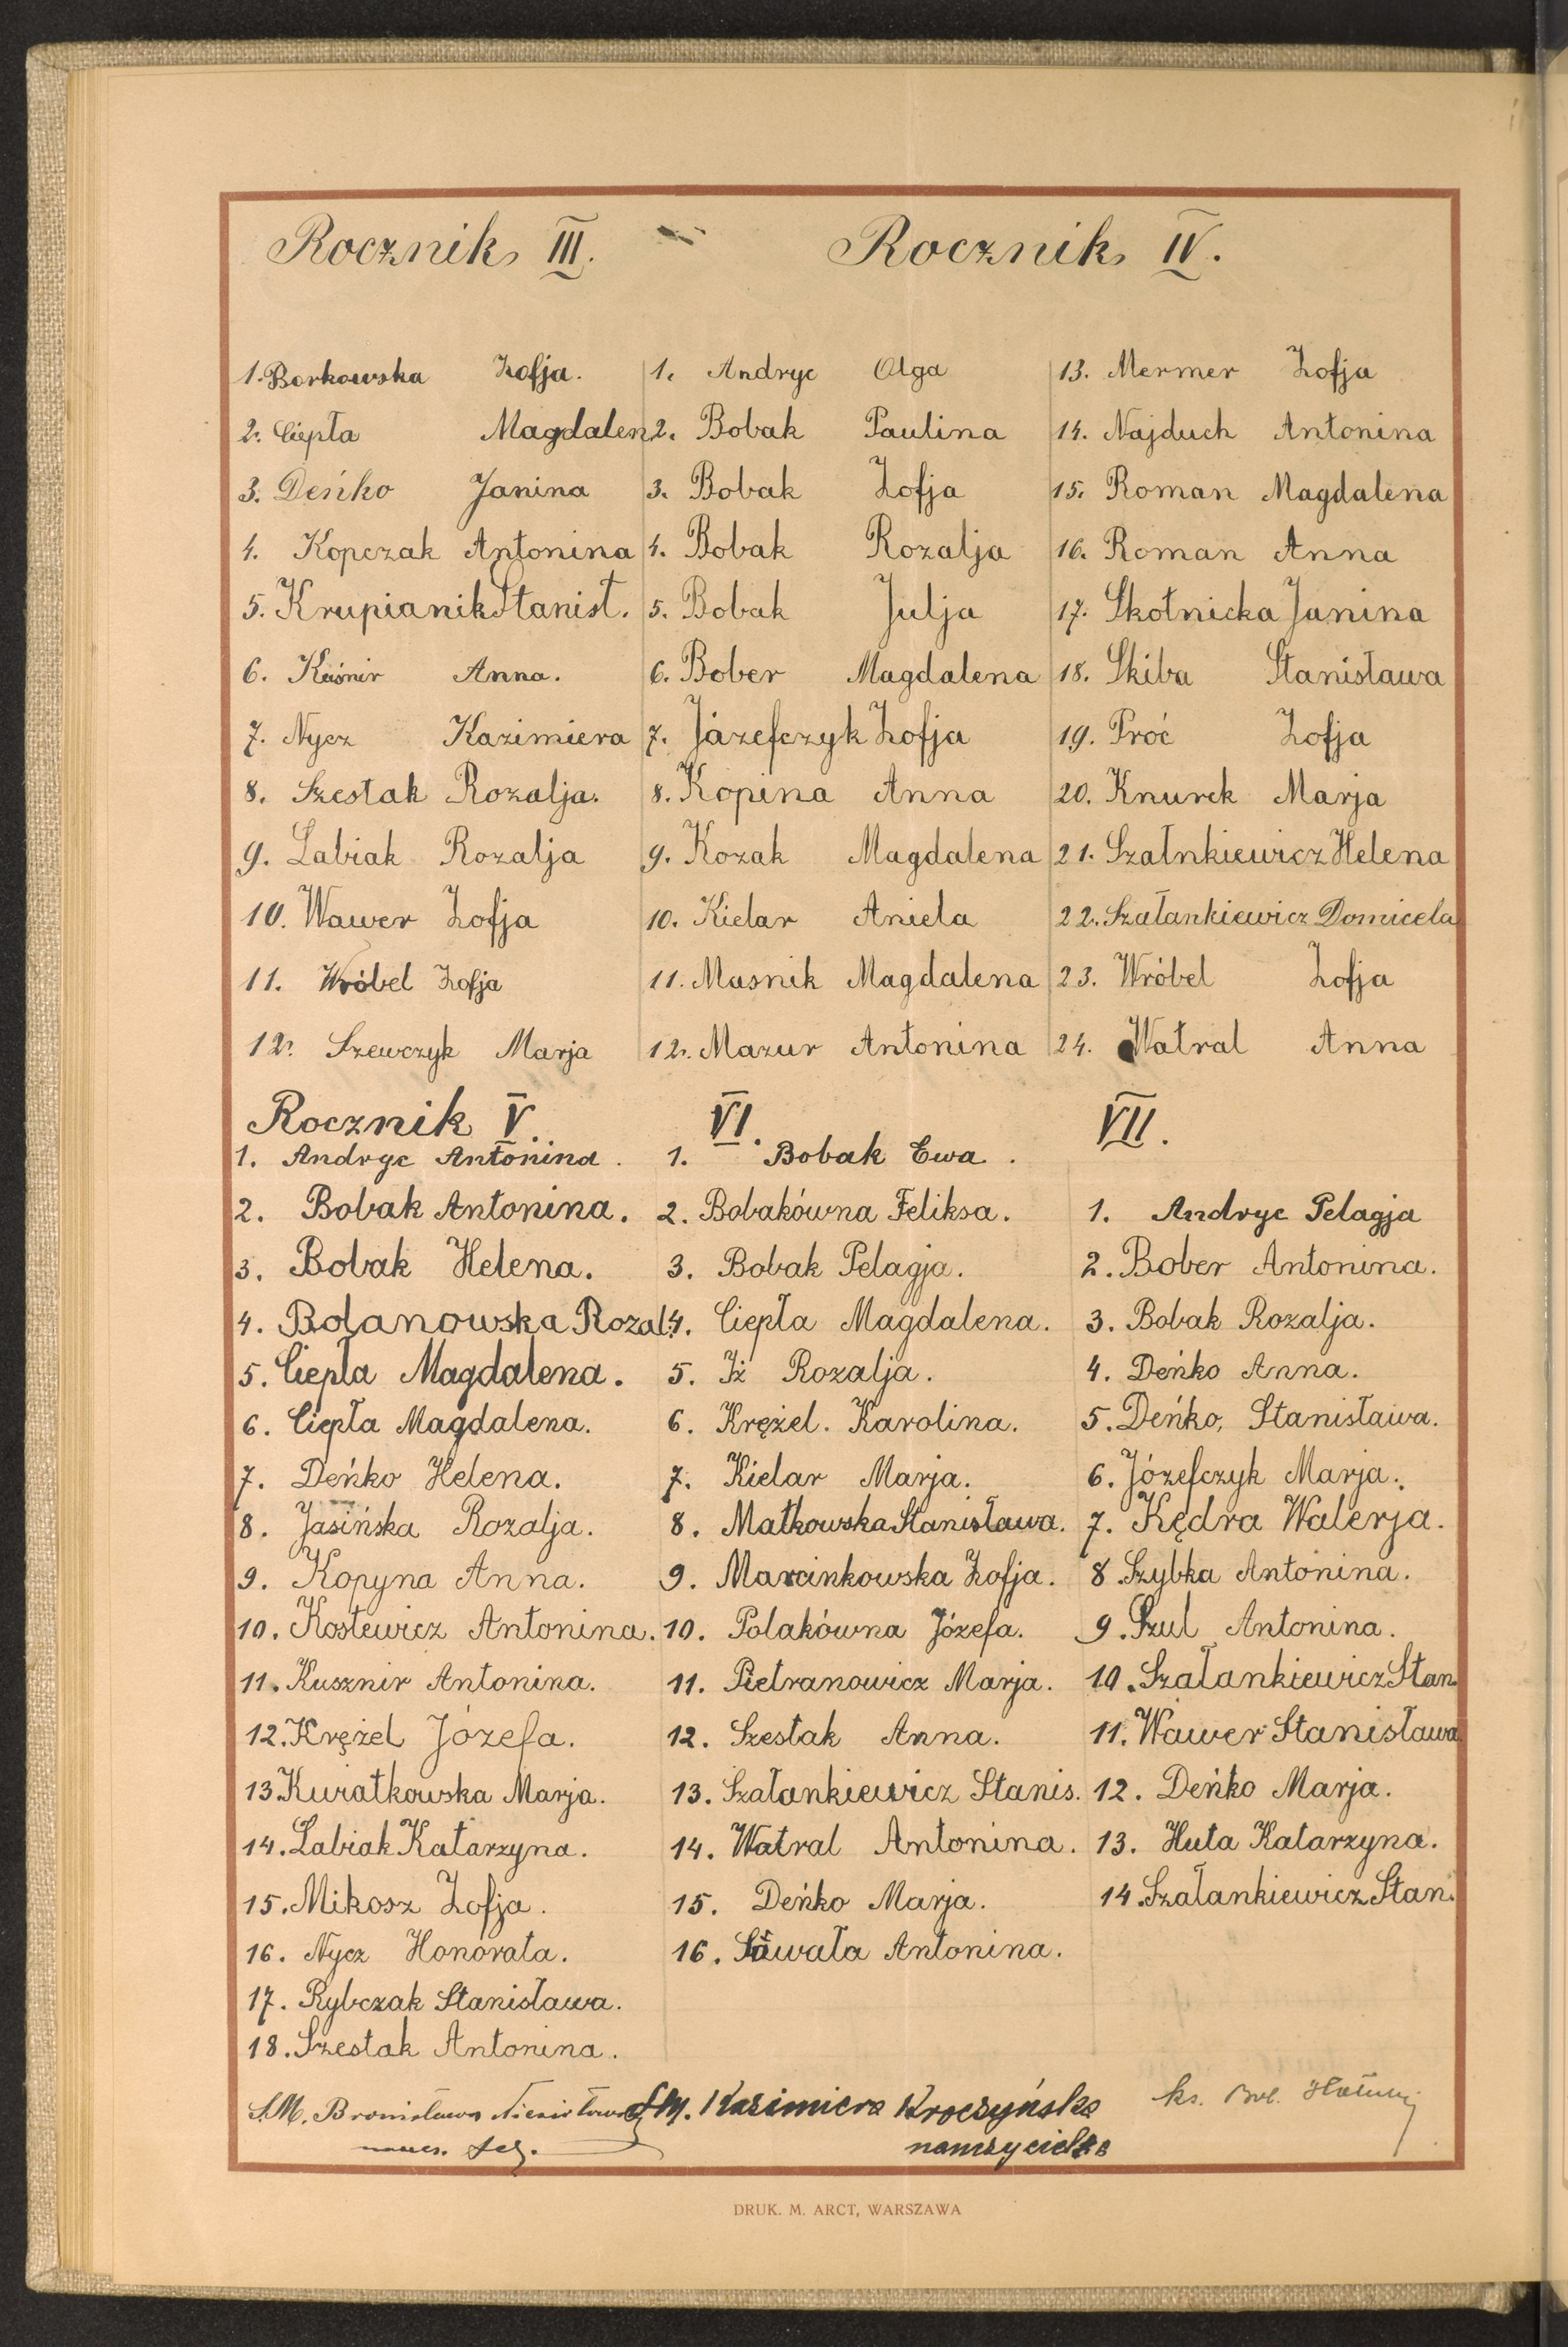 Rocznik III.
1. Borkowska Zofja.
2. Ciepła Magdalen
3. Deńko Janina
4. Kopczak Antonina
5. Krupianik Stanisł.
6. Kuśnir Anna.
7. Nycz Kazimiera
8. Szestak Rozalja.
9. Łabiak Rozalja
10. Wawer Zofja
11. Wróbel Zofja
12. Szewczyk Marja
Rocznik IV.
1. Andryc Olga
2. Bobak Paulina
3. Bobak Zofja
4. Bobak Rozalja
5. Bobak Julja
6. Bober Magdalena
7. Józefczyk Zofja
8. Kopina Anna
9. Kozak Magdalena
10. Kielar Aniela
11. Masnik Magdalena
12. Mazur Antonina
13. Mermer Zofja
14. Najduch Antonina
15. Roman Magdalena
16. Roman Anna
17. Skotnicka Janina
18. Skiba Stanisława
19. Proć Zofja
20. Knurek Marja
21. Szałnkiewicz Helena
22. Szałankiewicz Domicela
23. Wróbel Zofja
24. Watral Anna
Rocznik V.
1. Andryc Antonina.
2. Bobak Antonina.
3. Bobak Helena.
4. Bolanowska Rozal.
5. Ciepła Magdalena.
6. Ciepła Magdalena.
7. Deńko Helena.
8. Jasińska Rozalja.
9. Kopyna Anna.
10. Kostewicz Antonina.
11. Kusznir Antonina.
12. Krężel Józefa.
13. Kwiatkowska Marja.
14. Łabiak Katarzyna.
15. Mikosz Zofja.
16. Nycz Honorata.
17. Rybczak Stanisława.
18. Szestak Antonina.
VI.
1. Bobak Ewa.
2. Bobakówna Feliksa.
3. Bobak Pelagja.
4. Ciepła Magdalena.
5. Iż Rozalja.
6. Krężel. Karolina.
7. Kielar Marja.
8. Małkowska Stanisława.
9. Marcinkowska Zofja.
10. Polakówna Józefa.
11. Pietranowicz Marja.
12. Szestak Anna.
13. Szałankiewicz Stanis.
14. Watral Antonina.
15. Deńko Marja.
16. Antonina.
VII.
1. Andryc Pelagja
2. Bober Antonina.
3. Bobak Rozalja.
4. Deńko Anna.
5. Deńko, Stanisława.
6. Józefczyk Marja.
7. Kędra Walerja.
8. Szybka Antonina.
9. Szul Antonina.
10. Szałankiewicz Stan.
11. Wawer Stanisława
12. Deńko Marja.
13. Huta Katarzyna.
14. Szałankiewicz Stan.
S.M. Bronisława
S.M. Kazimiera Kroczyńska
nauczycielka
ks.
DRUK. M. ARCT, WARSZAWA